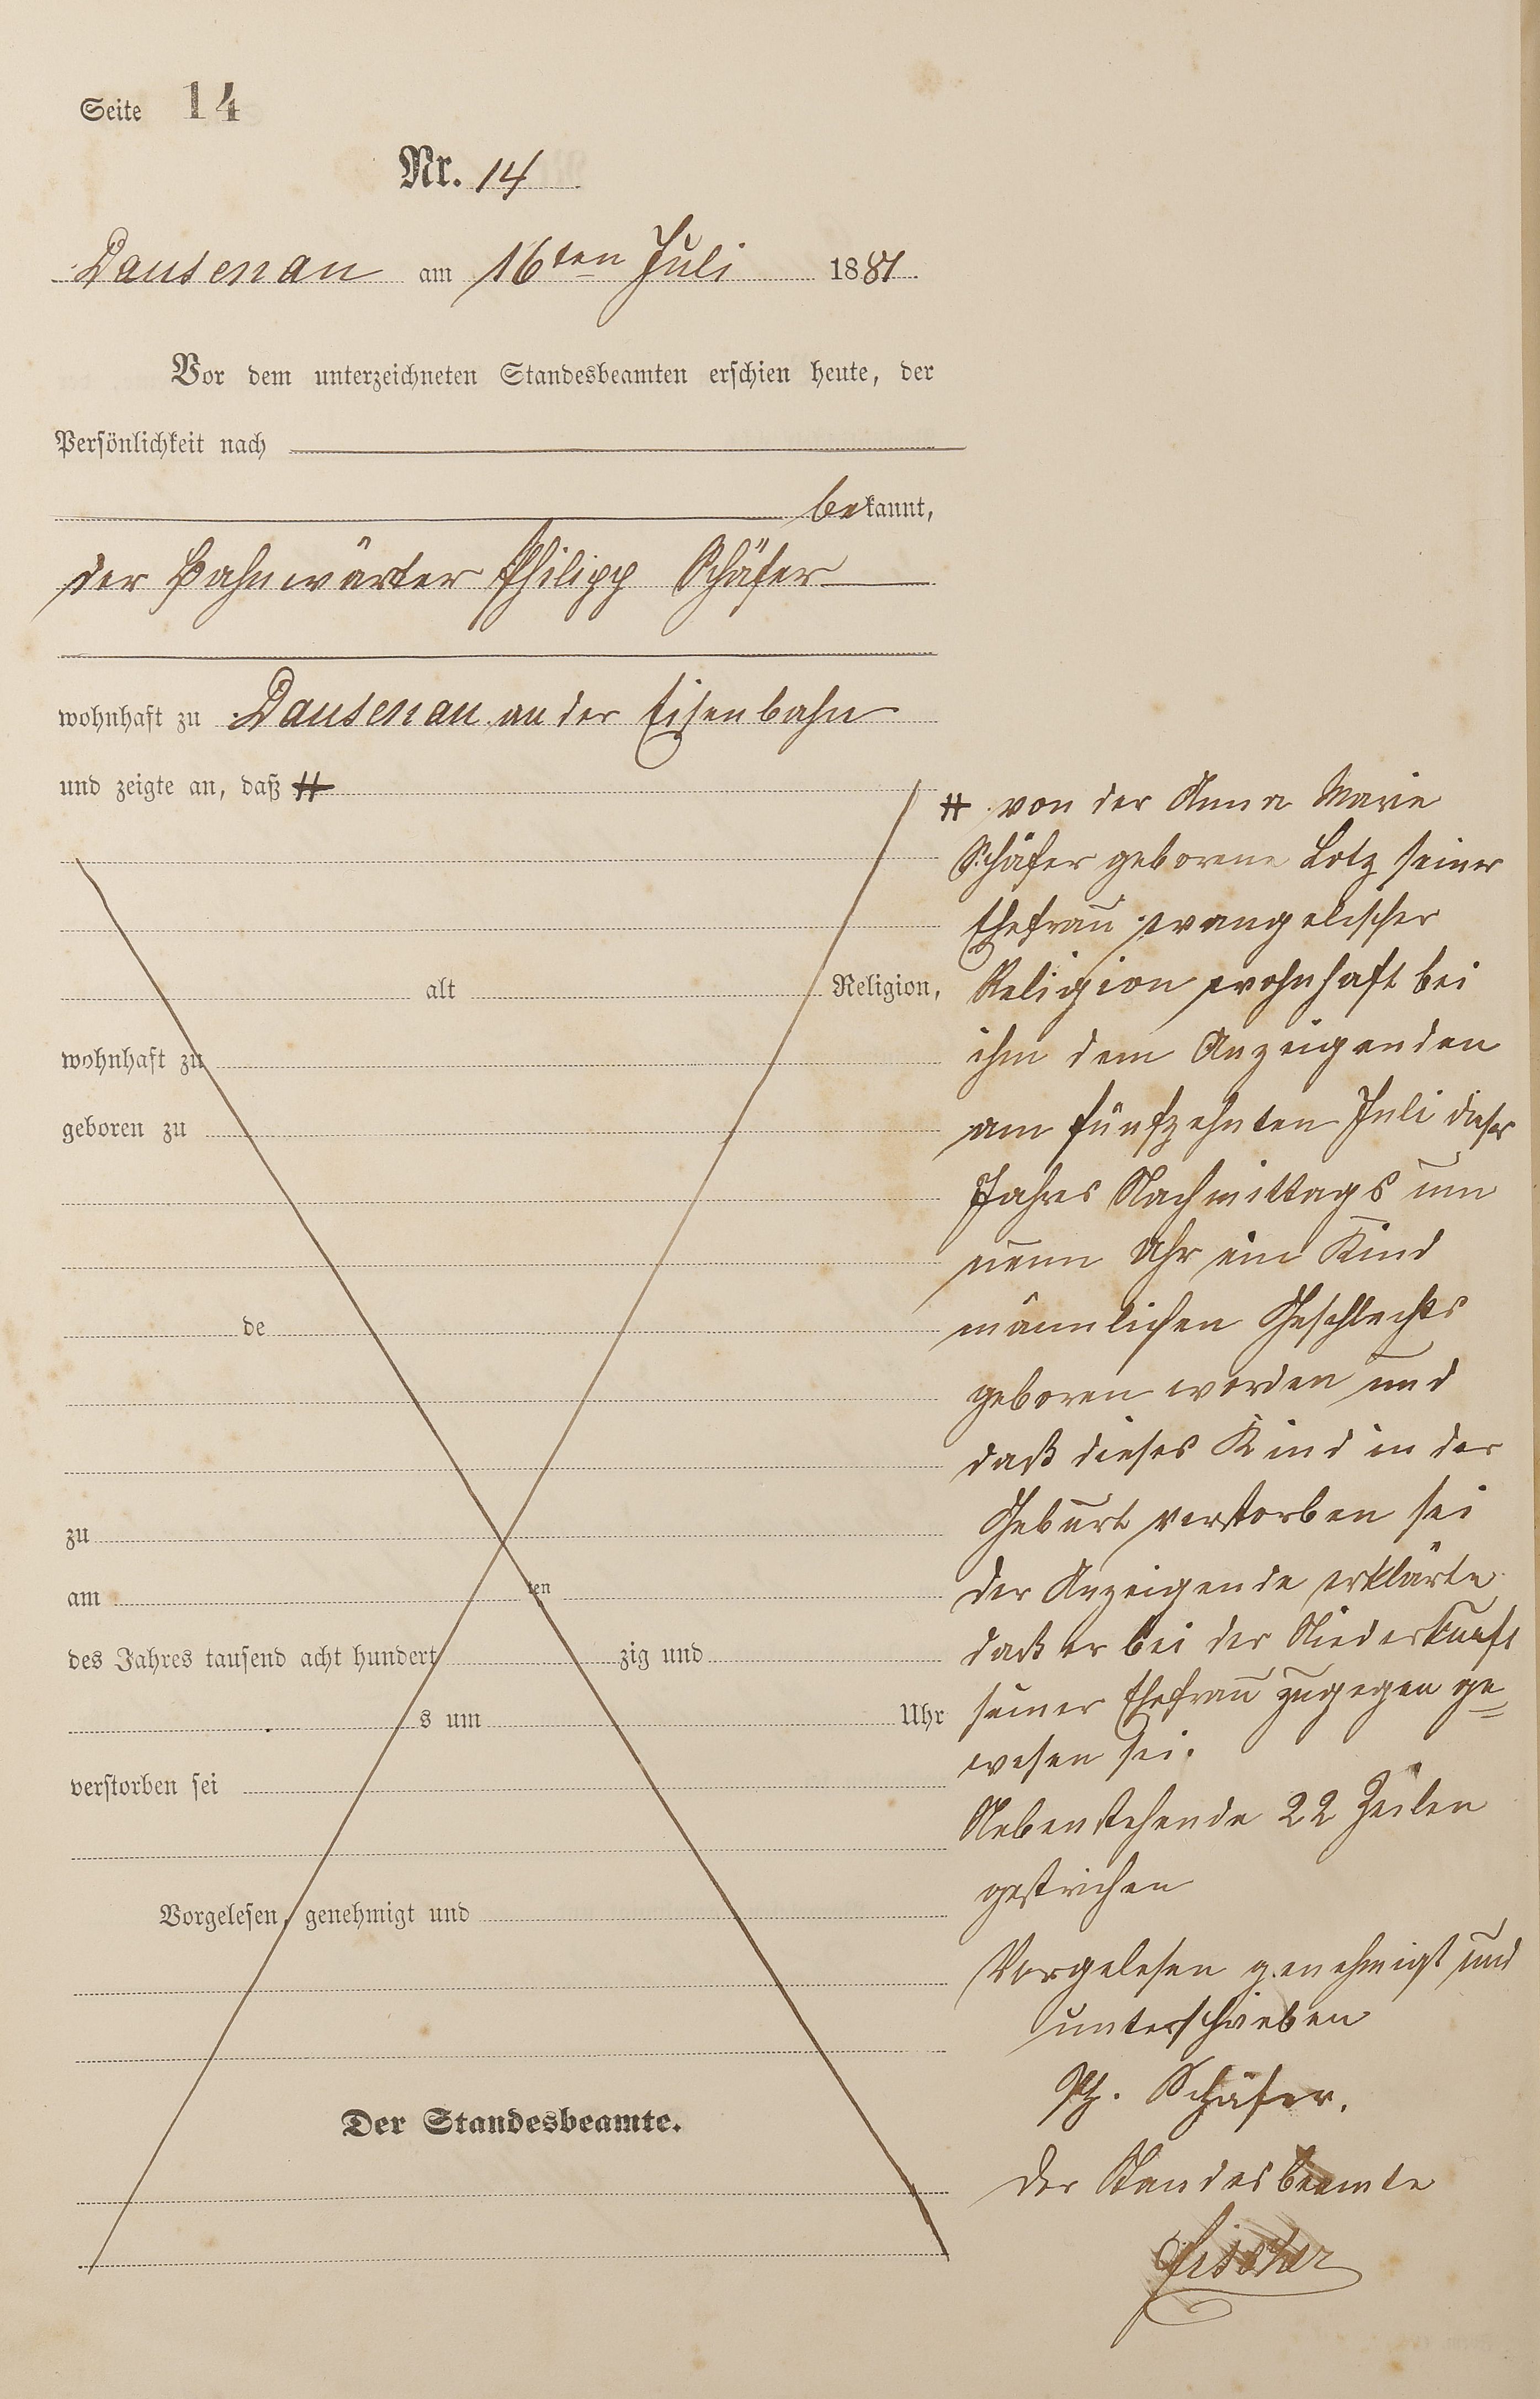 Seite 14
Nr. 14
Dausenau am 16ten Juli 1881
Vor dem unterzeichneten Standesbeamten erschien heute, der
Persönlichkeit nach
bekannt,
der Bahnwärter Philipp Schäfer
wohnhaft zu Dausenau an der Eisenbahn
und zeigte an, daß #
alt Religion,
wohnhaft zu
geboren zu
de
zu
am ten
des Jahres tausend acht hundert zig und
s um Uhr
verstorben sei
Vorgelesen, genehmigt und
Der Standesbeamte.
# von der Anna Marie
Schäfer geborene Lotz seiner
Ehefrau evangelischer
Religion wohnhaft bei
ihm dem Anzeigenden
am fünfzehnten Juli dieses
Jahres Nachmittags um
neun Uhr ein Kind
männlichen Geschlechts
geboren worden und
daß dieses Kind in der
Geburt verstorben sei
der Anzeigende erklärte
daß er bei der Niederkunft
seiner Ehefrau zugegen ge=
wesen sei.
Nebenstehende 22 Zeilen
gestrichen
Vorgelesen genehmigt und
unterschrieben
Ph. Schäfer.
Der Standesbeamte
Fischer